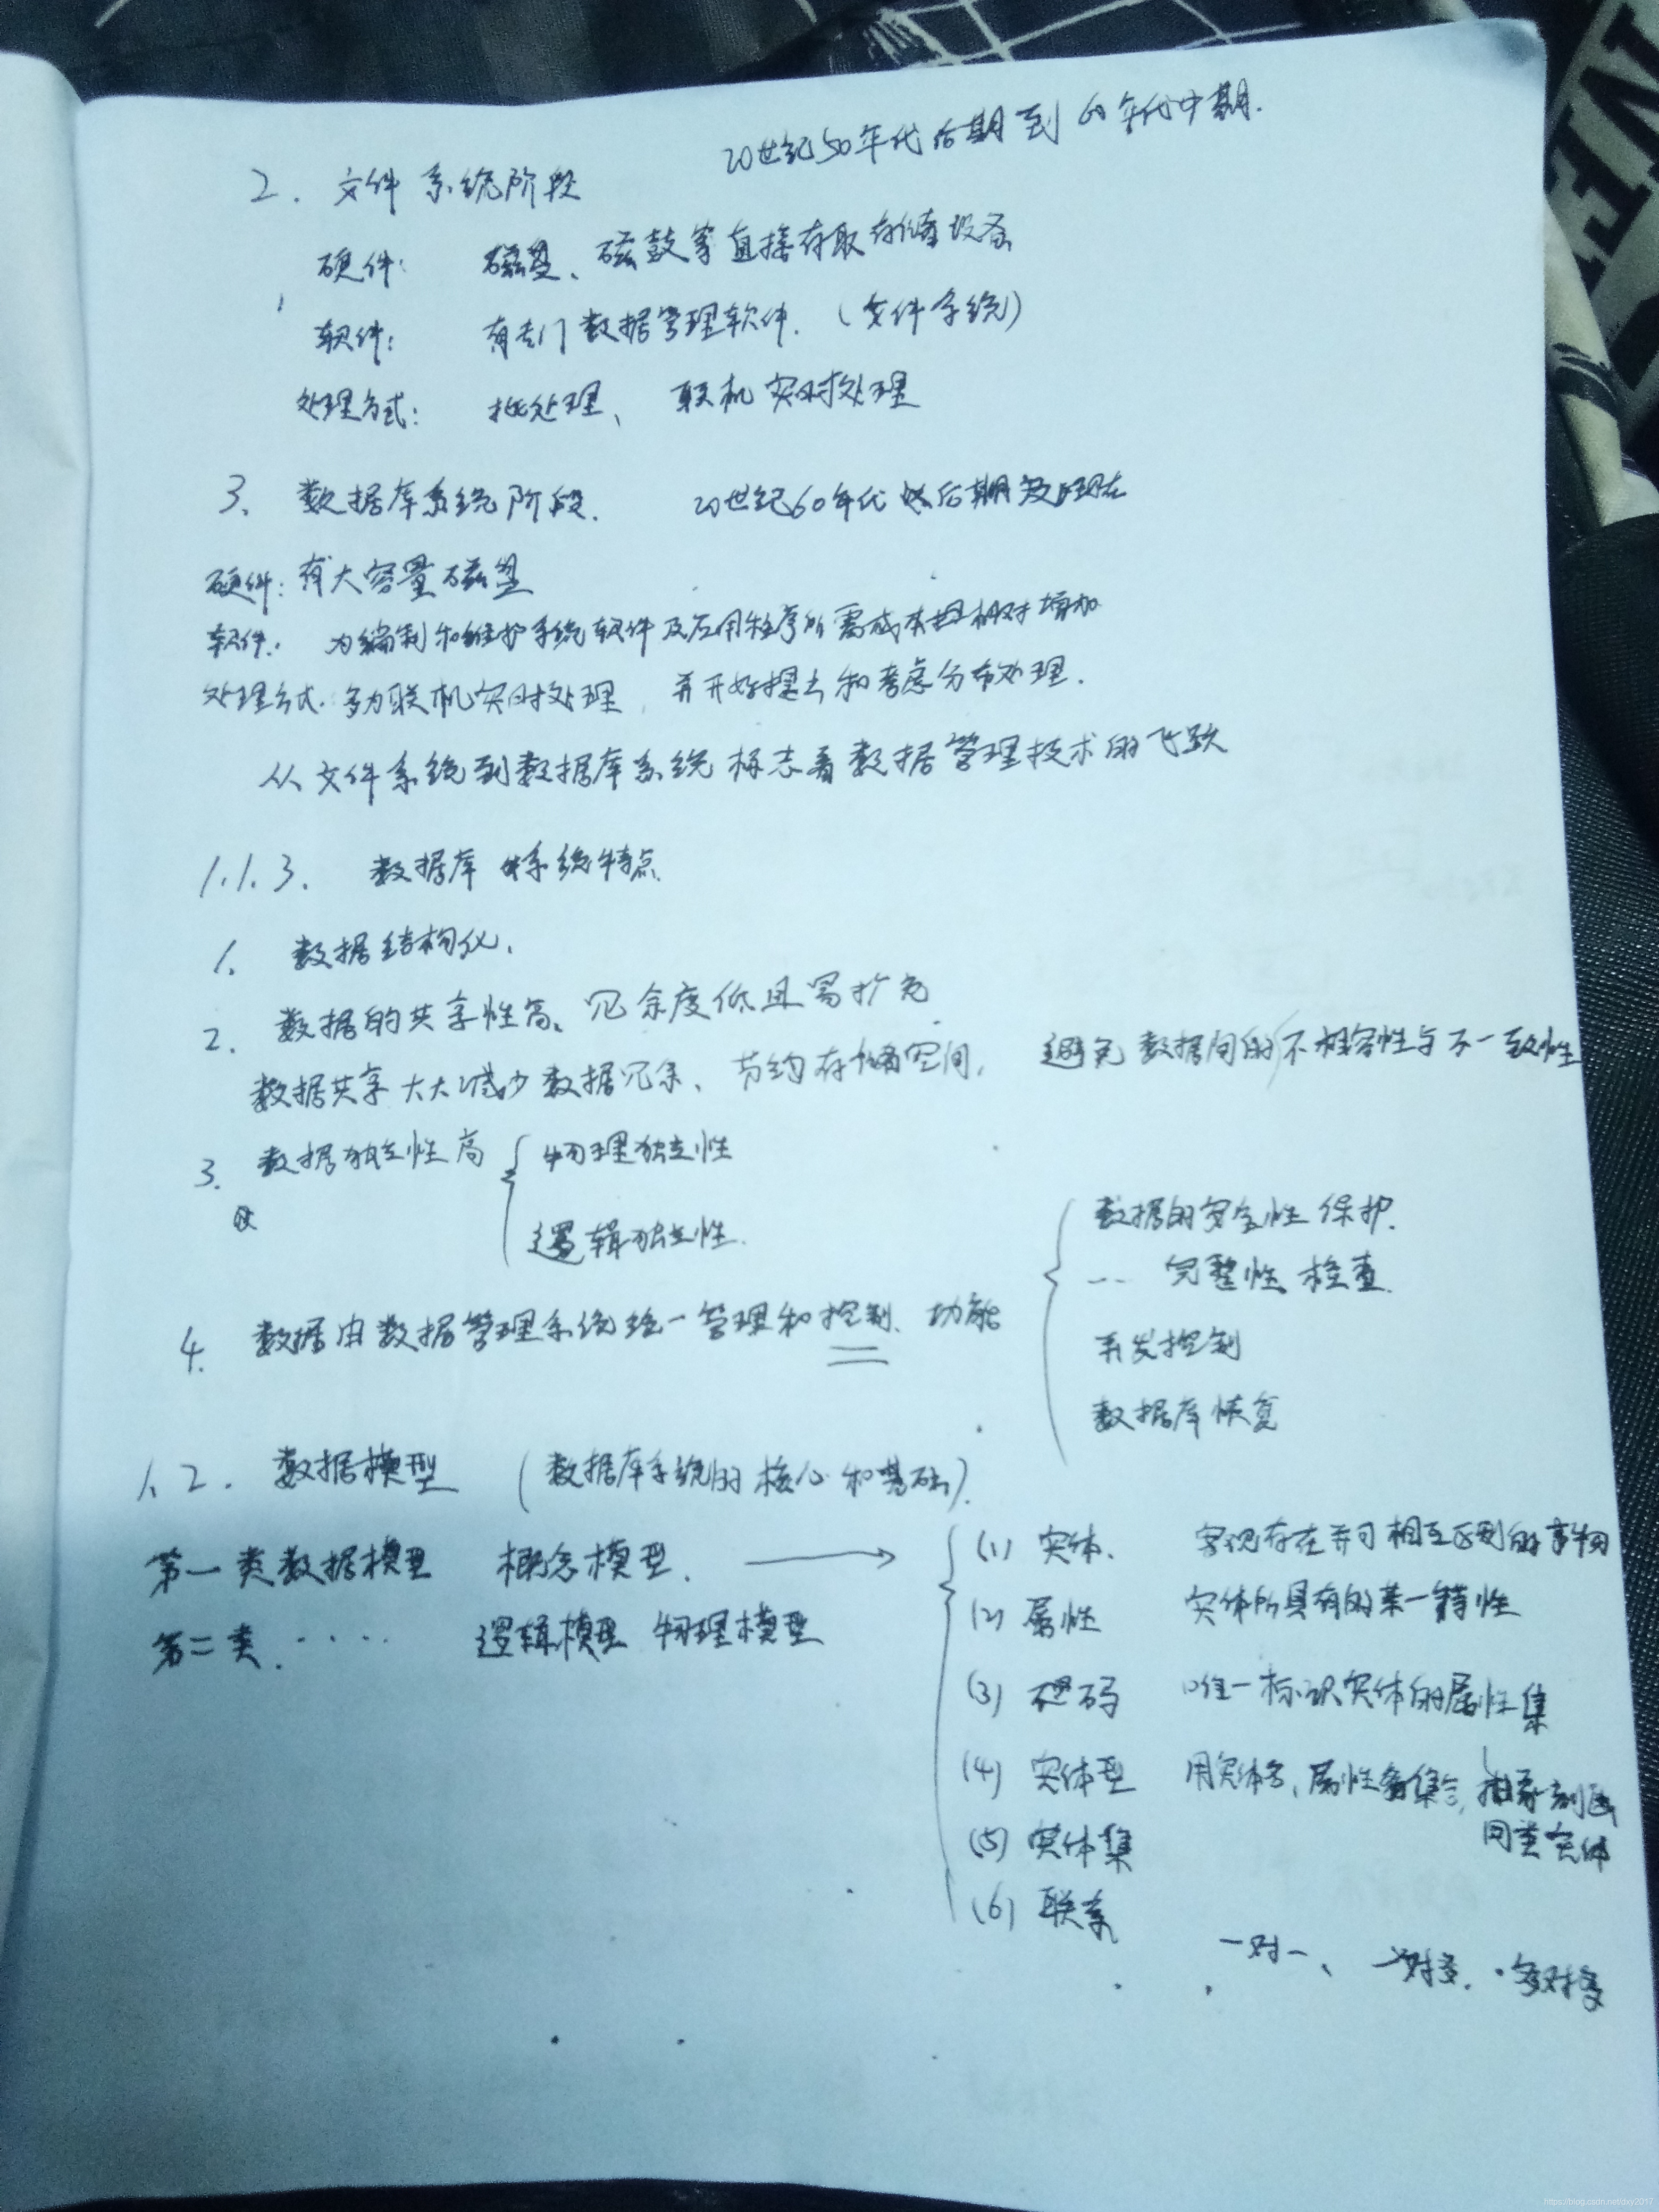 20世纪50年代后期到60年代中期.
2. 文件系统阶段
硬件: 磁盘、磁鼓等直接存取存储设备
软件: 有专门数据管理软件.(文件系统)
处理方式: 批处理、联机实时处理
3. 数据库系统阶段. 20世纪60年代后期及现在
硬件:有大容量磁盘
软件: 为编制和维护系统软件及应用程序所需成本相对增加
处理方式. 多为联机实时处理, 并开始提出和考虑分布处理.
从文件系统到数据库系统标志着数据管理技术的飞跃
1.1.3. 数据库系统特点
1. 数据结构化.
2. 数据的共享性高、冗余度低且易扩充
数据共享大大减少数据冗余、节约存储空间, 避免数据间的不相容性与不一致性
3. 数据独立性高 物理独立性
逻辑独立性.
4. 数据由数据管理系统统一管理和控制、功能
数据的安全性保护.
... 完整性检查
并发控制
数据库恢复
1.2. 数据模型 (数据库系统的核心和基础).
第一类数据模型 概念模型. →
第二类..... 逻辑模型 物理模型
(1) 实体. 客观存在并可相互区别的事物
(2) 属性 实体所具有的某一特性
(3) 码 唯一标识实体的属性集
(4) 实体型 用实体名,属性名集合,抽象刻画
同类实体
(5) 实体集
(6) 联系
一对一、 一对多. 多对多
https://blog.csdn.net/dxy2017